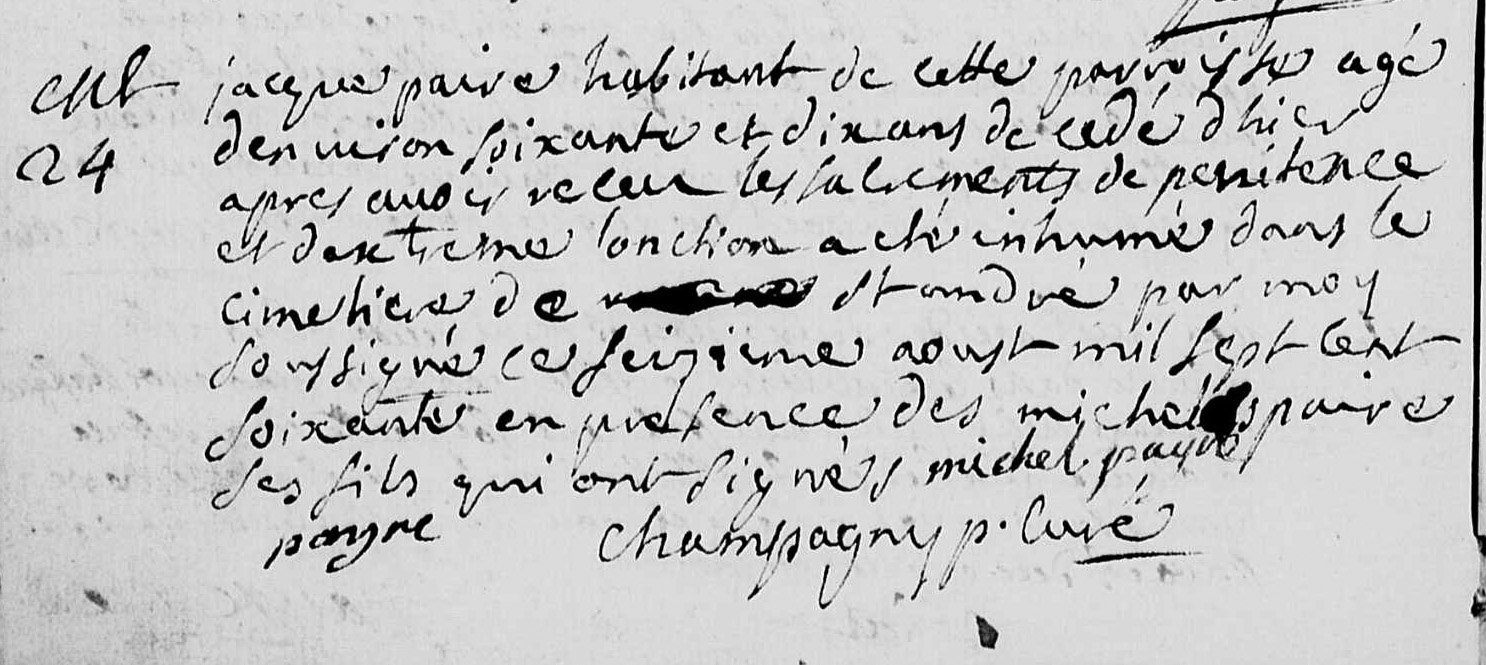 24
jacque paire habitant de cette parroisse agé
denviron soixante et dix ans decedé dhier
apres avoir receu les sacrements de penitence
et dextreme lonction a eté inhumé dans le
cimetiere de st andré par moy
soussigné ce seizieme aoust mil sept cent
soixante en presence des michel paire
ses fils qui ont signés michel payre
payre champagny p. curé